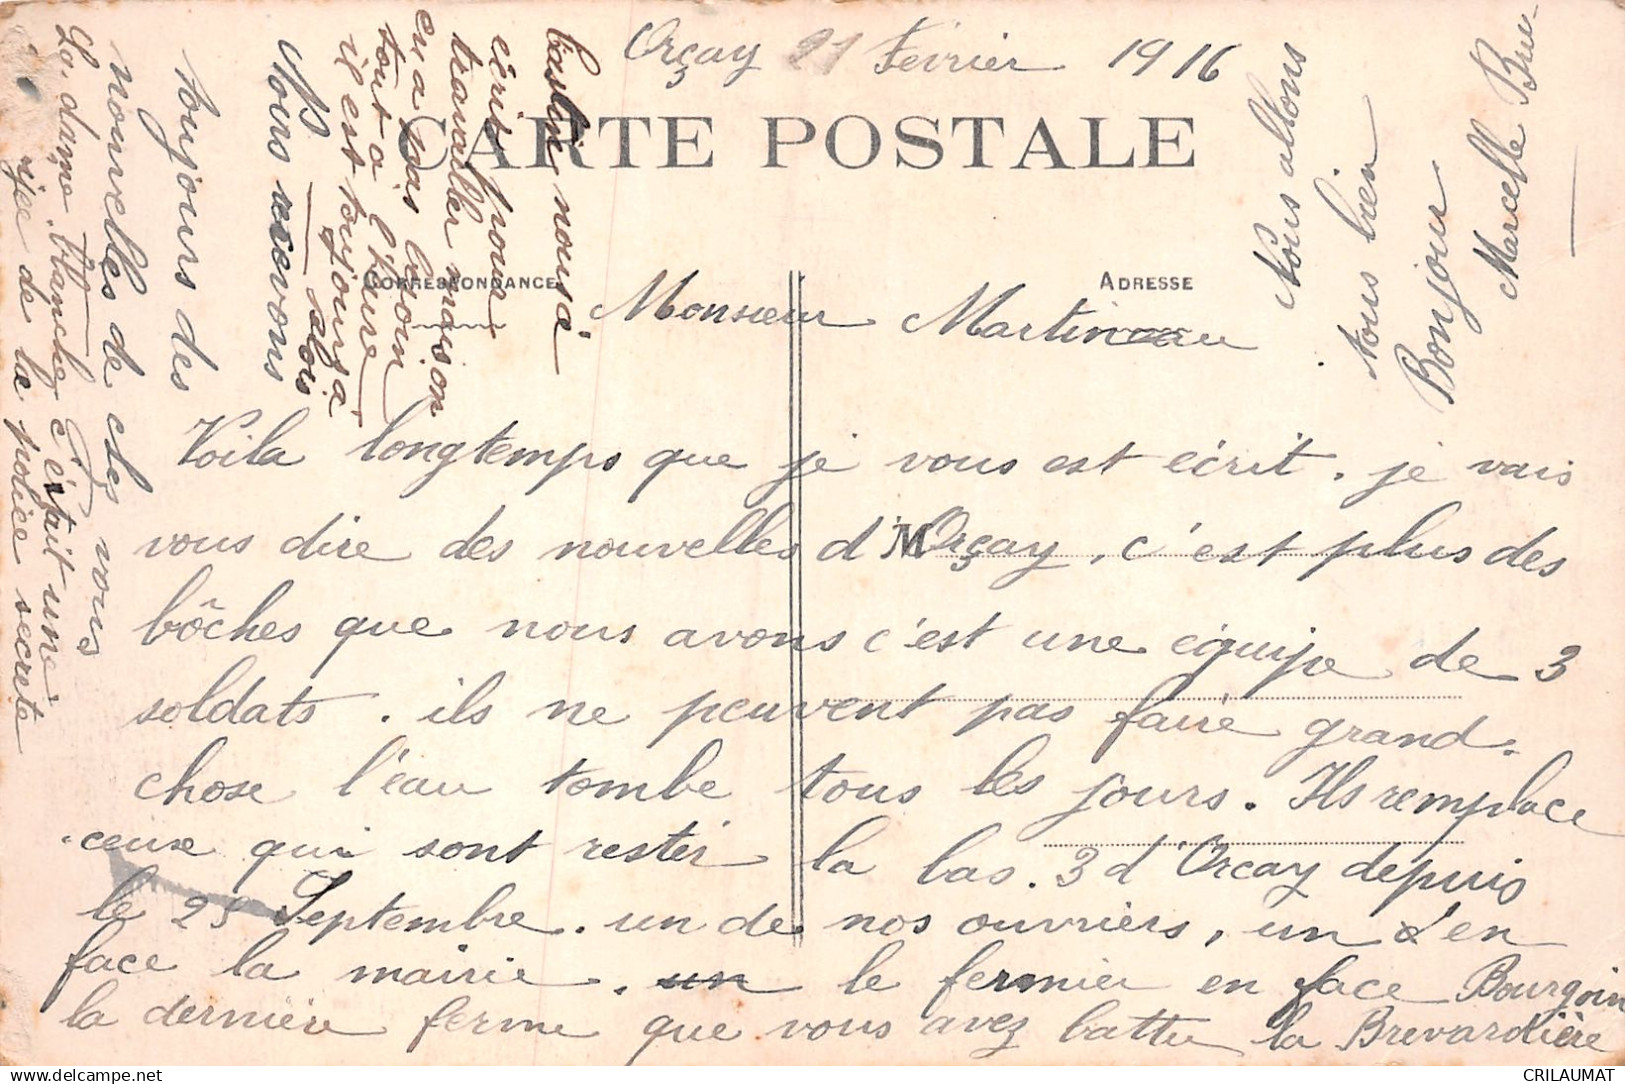 Orçay 21 Février 1916
CARTE POSTALE
CORRESPONDANCE
ADRESSE
Monsieur Martineau
Voila longtemps que je vous est écrit. je vais
vous dire des nouvelles d'Orçay, c'est plus des
M
bôches que nous avons c'est une équipe de 3
soldats. ils ne peuvent pas faire grand
chose l'eau tombe tous les jours. Ils remplace
ceux qui sont rester la bas. 3 d'Orcay depuis
le 25 Septembre. un de nos ouvriers, un d'en
face la mairie. un le fermier en face Bourgoin
la dernière ferme que vous avez battu la Brevardière
Nous avons
toujours des
nouvelles de chez vous
La dame blanche c'était une
rijee de la police secrete
nous a
écrit pour
travailler mais on
en a pas besoin
tout a l'heure
il est toujours a
Nous allons
tous bien
Bonjour
Marcelle
CRILAUMAT